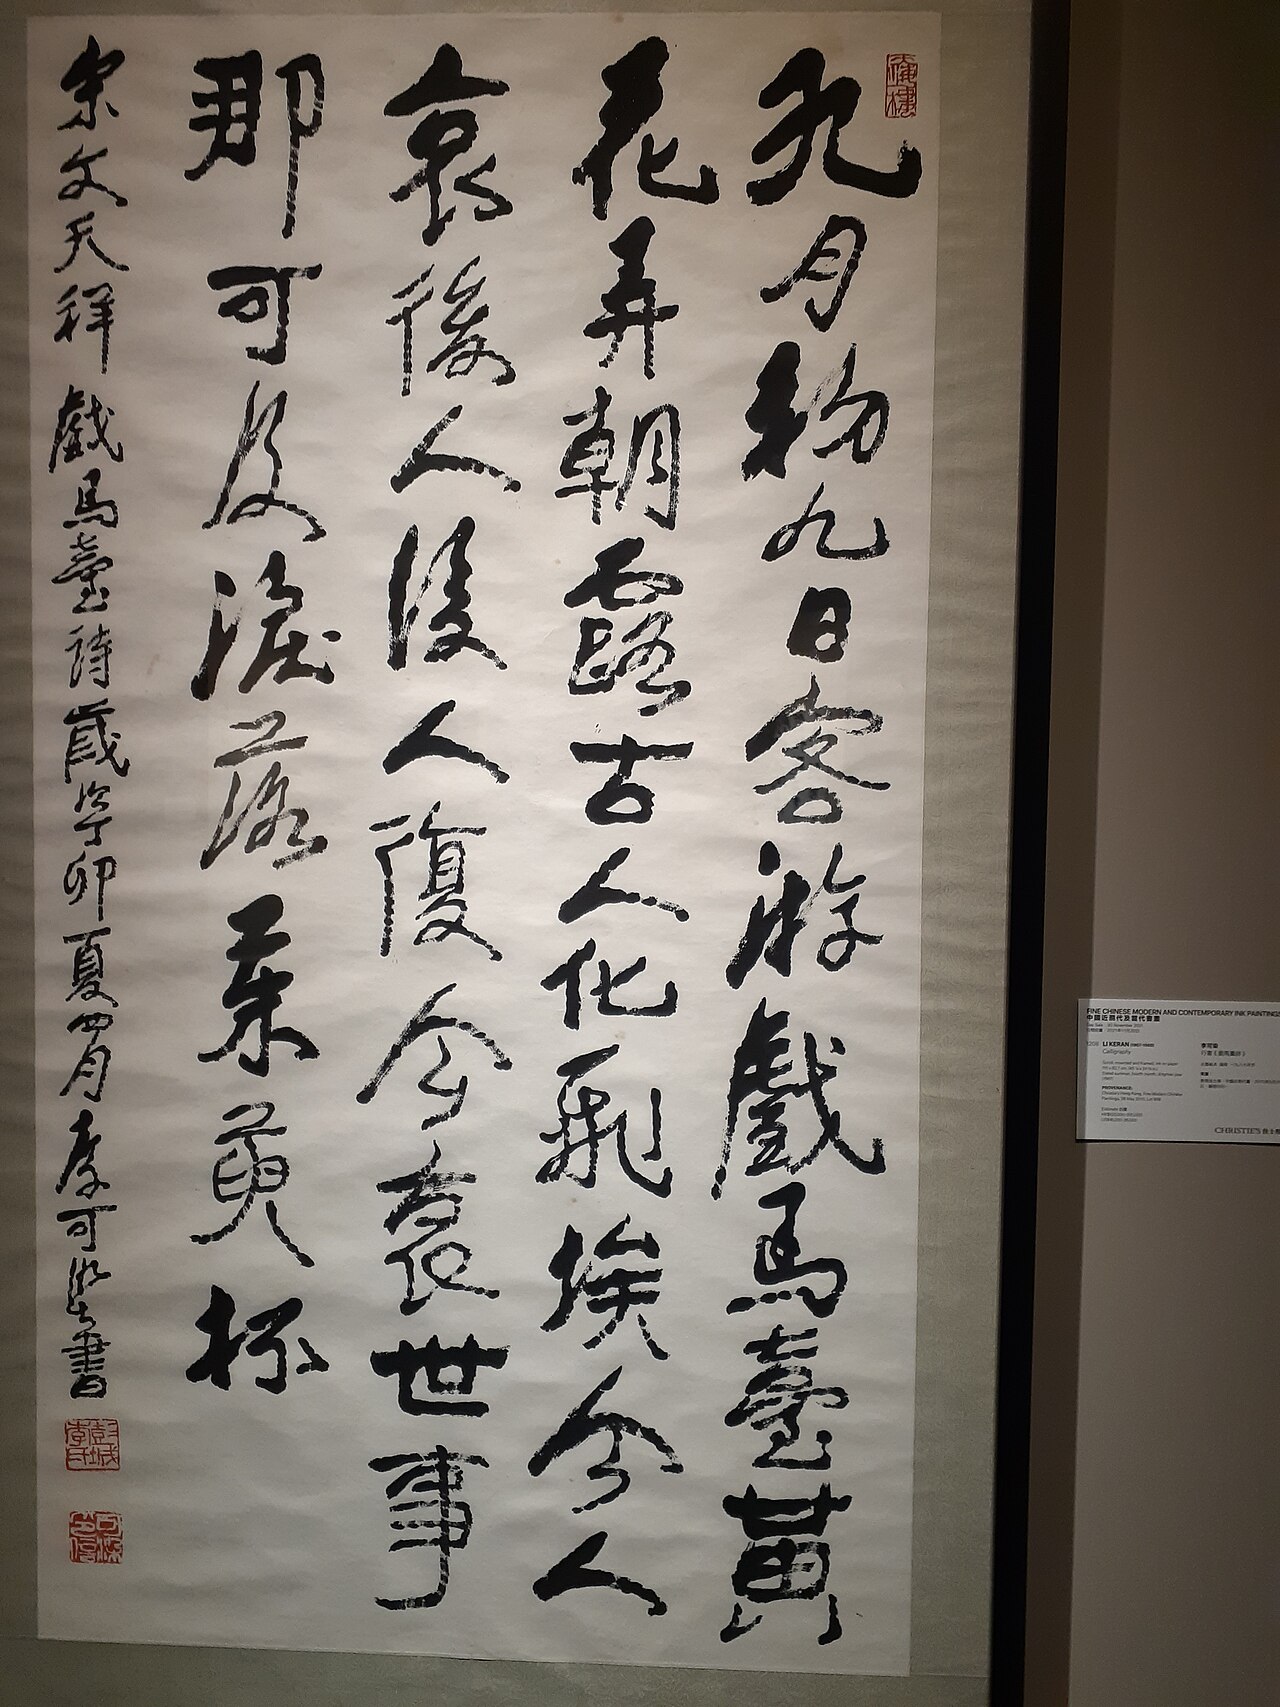 九月初九日客游戲馬臺黃
花弄朝露古人化飛埃今人
哀後人後人復今哀世事
那可及淚落茱萸杯
宋文天祥戲馬臺詩歲丁卯夏四月李可染書
彭城李氏
FINE CHINESE MODERN AND CONTEMPORARY INK PAINTINGS
中國近現代及當代書畫
LI KERAN (1907-1989)
李可染
Calligraphy
PROVENANCE:
CHRISTIE'S